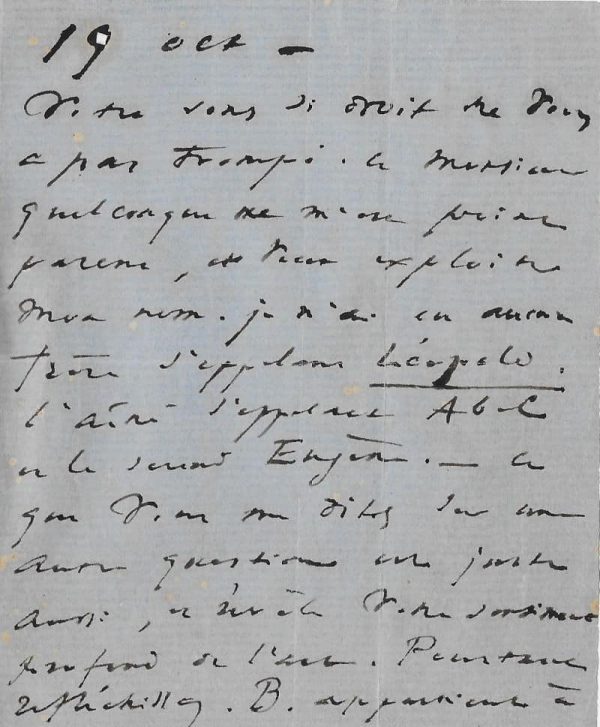 19 oct –
Votre sens si droit ne vous
a pas trompé. Ce monsieur
quelconque ne m'est point
parent, et veut exploiter
mon nom. je n'ai eu aucun
frère s'appelant Léopold.
l'aîné s'appelait Abel
et le second Eugène. — Ce
que vous me dites sur une
autre question est juste
aussi, et révèle votre sentiment
profond de l'art. Pourtant
réfléchissez. B. appartient à